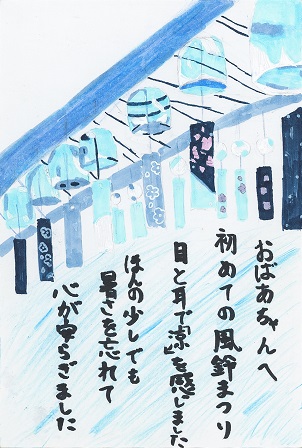 おばあちゃんへ
初めての風鈴まつり
目と耳で「涼」を感じました
ほんの少しでも
暑さを忘れて
心が安らぎました